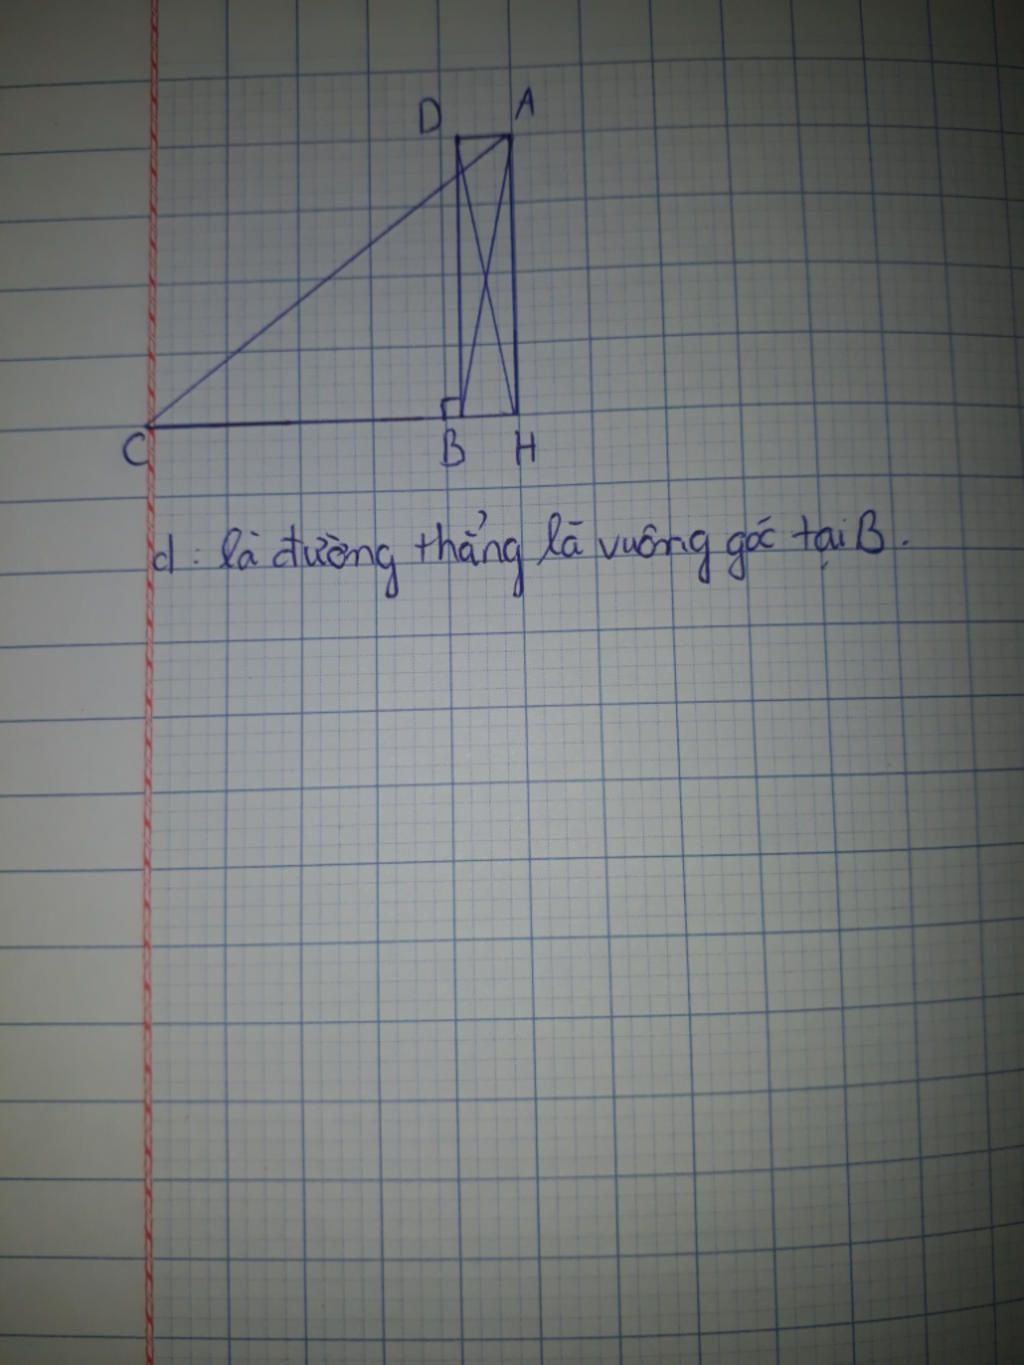 D A
C B H
d : là đường thẳng là vuông góc tại B.